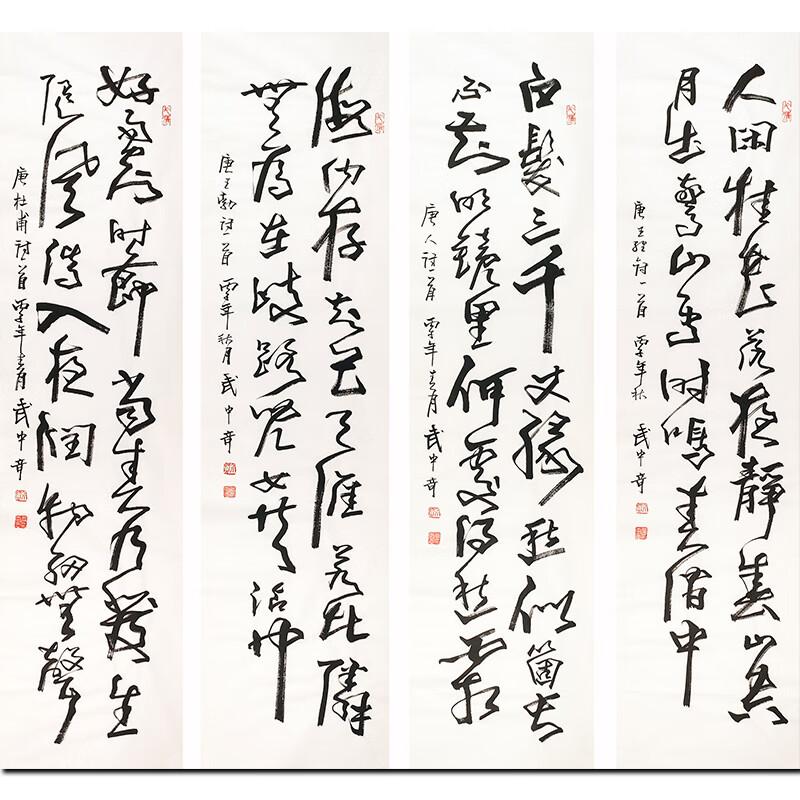 人闲桂花落夜靜春山空
月出驚山鸟时鳴春澗中
唐王维诗一首 年秋 武中奇
白髮三千丈缘愁似箇长
不知明鏡里何處得秋霜
唐人诗一首 年春月 武中奇
海内存知己天涯若比隣
無为在歧路児女共沾巾
唐王勃诗一首 年秋月 武中奇
好雨知时節当春乃發生
随风潜入夜润物細無聲
唐杜甫诗一首 年春月 武中奇